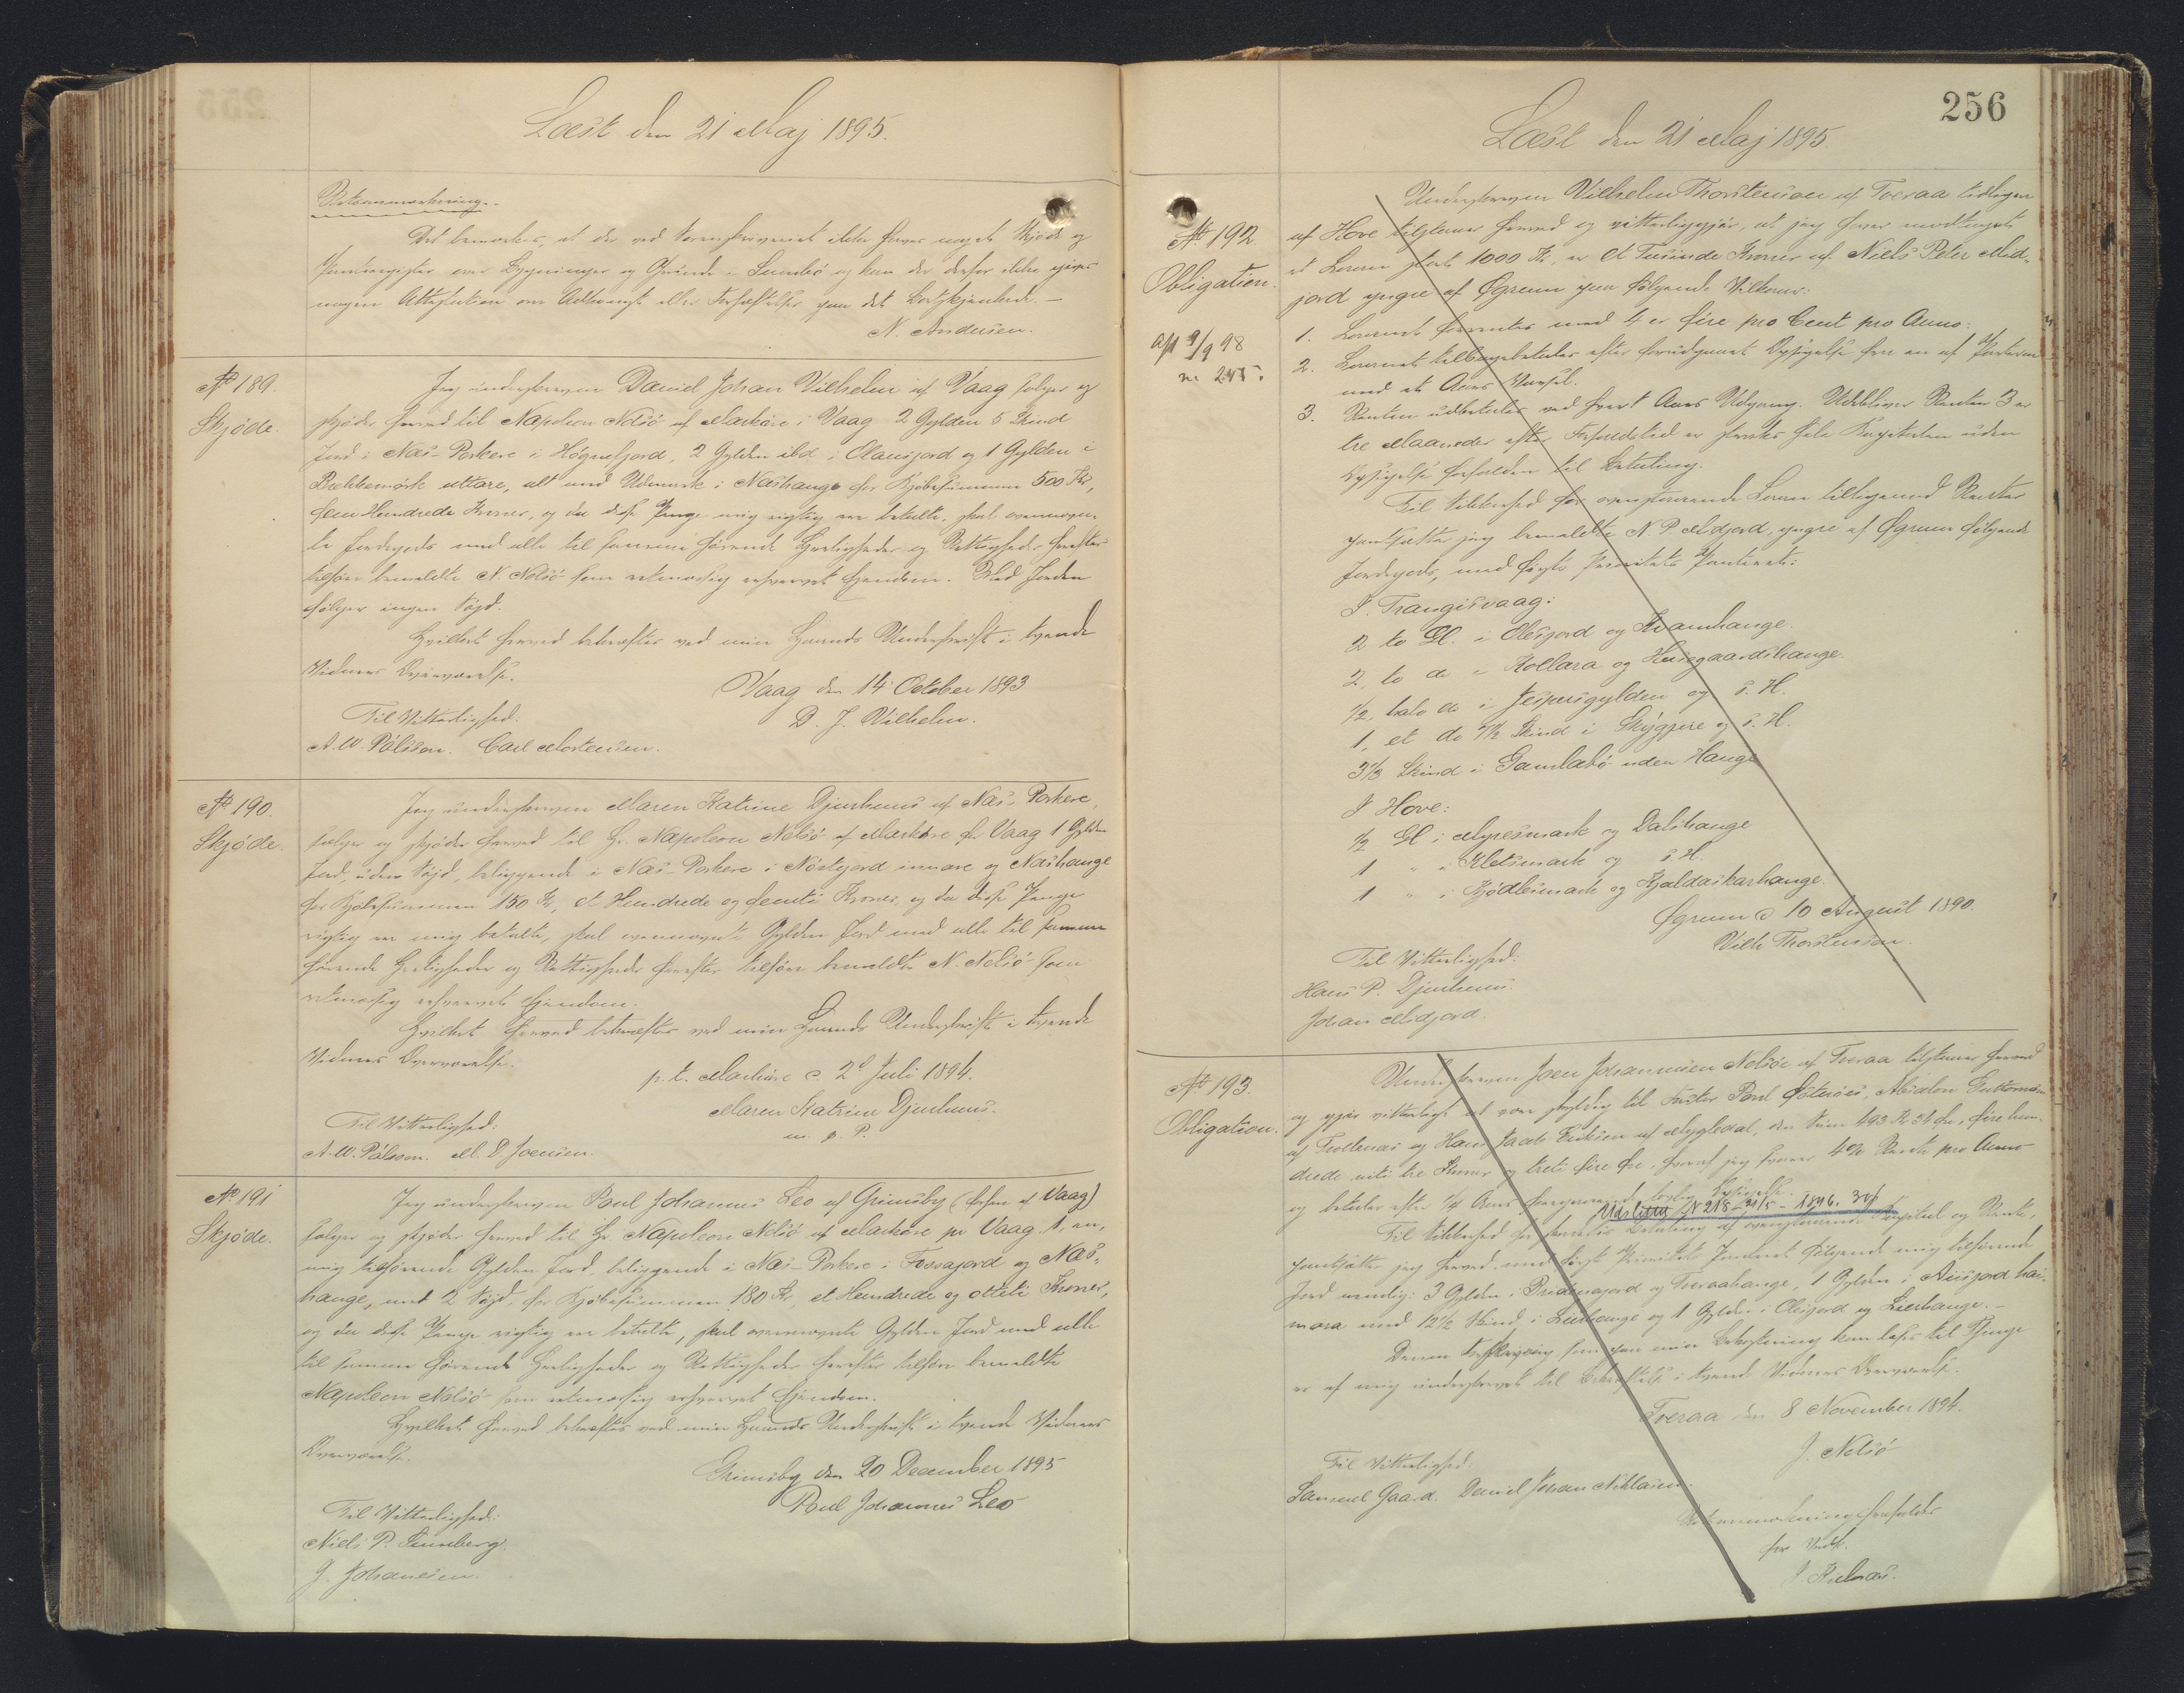 Læst den 21 Maj 1895.
Retsanmærkning.
Det bemærkes, at der ved Sorenskriveriet ikke haves noget Skjøde og
Panteregister over Bygninger og Grunde i Sumbø og kan der derfor ikke gives
nogen Attestation om Adkomst eller Forhæftelser paa det Bortskjænkede. —
N. Andersen.
No 189.
Skjøde.
Jeg underskreven Daniel Johan Vilhelm af Vaag sælger og
skjøder herved til Napoleon Nolsö af Marköre i Vaag 2 Gylden 5 Skind
Jord i Næs-Porkere i Högnesjord, 2 Gylden ibd i Clausjord og 1 Gylden i
Bækkemörk uttare, alt med Udmark i Næshauge for Kjøbesummen 500 Kr,
fem Hundrede Kroner, og da disse Penge mig rigtig ere betalte, skal ovennævn-
te Jordegods med alle til samme hørende Herligheder og Rettigheder herefter
tilhøre bemeldte N. Nolsö som retmæssig erhvervet Ejendom. Med Jorden
følger ingen Söjd.
Hvilket herved bekræftes ved min Haands Underskrift i tvende
Vidners Overværelse.
Vaag den 14 October 1893
D. J. Vilhelm.
Til Vitterlighed:
A. W. Pálsson. Carl Mortensen.
No 190.
Skjøde.
Jeg underskreven Maren Katrine Djurhuus af Næs-Porkere,
sælger og skjøder herved til Hr. Napoleon Nolsö af Markøre pr Vaag 1 Gylden
Jord, uden Söjd, beliggende i Næs-Porkere i Nörtejord innare og Næshauge
for Kjøbesummen 150 Kr, et Hundrede og femti Kroner, og da disse Penge
rigtig ere mig betalte, skal ovennævnte Gylden Jord med alle til samme
hørende Herligheder og Rettigheder herefter tilhøre bemeldte N. Nolsö som
retmæssig erhvervet Ejendom.
Hvilket herved bekræftes ved min Haands Underskrift i tvende
Vidners Overværelse.
p. t. Marköre d. 2 Juli 1894.
Maren Katrine Djurhuus.
m. p. P.
Til Vitterlighed:
A. W. Pálsson. M. D. Joensen.
No 191
Skjøde.
Jeg underskreven Poul Johannes Leo af Grimsby (
af Vaag)
sælger og skjøder herved til Hr. Napoleon Nolsö af Markøre pr Vaag 1, en,
mig tilhørende Gylden Jord, beliggende i Næs-Porkere i Fossajord og Næs-
hauge, med 2 Söjd, for Kjøbesummen 180 Kr, et Hundrede og otteti Kroner,
og da disse Penge rigtig ere betalte, skal ovennævnte Gylden Jord med alle
til samme hørende Herligheder og Rettigheder herefter tilhøre bemeldte
Napoleon Nolsö som retmæssig erhvervet Ejendom.
Hvilket herved bekræftes ved min Haands Underskrift i tvende Vidners
Overværelse.
Grimsby den 20 December 1895
Poul Johannes Leo
Til Vitterlighed:
Niels P. Sumberg.
J. Johanesen.
256
Læst den 21 Maj 1895.
No 192.
Obligation.
Underskreven Vilhelm Thorsteinson af Tveraa tidligere
af Hove tilstaaer herved og vitterliggjør, at jeg haver modtaget
et Laan stort 1000 Kr, er et Tusinde Kroner af Niels Peter Mid-
jord yngre af Øgrum paa følgende Vilkaar:
1. Laanet forrentes med 4 er fire pro Cent pro Anno.
2. Laanet tilbagebetales efter forudgaaet Opsigelse fra en af Parterne
med et Aars Varsel.
3. Renten udbetales ved hvert Aars Udgang. Udebliver Renten 3 er
tre Maaneder efter Forfaldstid er straks hele Kapitalen uden
Opsigelse forfalden til Betaling.
Til Sikkerhed for ovenstaaende Laan tilligemed Renter
pantsætter jeg bemeldte N. P. Midjord, yngre af Øgrum følgende
Jordegods, med første Prioritets Panteret:
I. Trangisvaag:
2 to Gl. i Olesjord og Kvamhauge.
2, to do i Kollara og Huusgaardshauge.
1/2, halv do i Jespersgylden og s. H.
1, et do 7 1/2 Skind i Skyggjere og s. H.
3 1/3 Skind i Gamlabö uden Hauge
I Hove:
1/2 Gl i Myresmark og Dalshauge
1 " " Kletsmark og s. H.
1 " i Kjødlesmark og Kjaldaskarhauge.
Øgrum d 10 August 1890.
Vilh. Thorsteinson.
Til Vitterlighed:
Hans P. Djurhuus.
Johan Midjord.
No 193.
Obligation.
Underskreven Joen Johannesen Nolsöe af Tveraa tilstaaer herved
og gjør vitterligt at være skyldig til
Poul
, Absalon
af Trollenæs og Hans Jacob
af Mygledal, den Sum 493 Kr 34 Øre, fire hun-
drede niti tre Kroner og treti fire Øre, hvoraf jeg svarer 4% Rente pro Anno
og betales efter 1/4 Aars foregaaende lovlig Opsigelse.
Udslettet N 218 – 21/5 – 1896.
Til Sikkerhed for skadesløs Betaling af ovenstaaende Capital og Rente,
pantsætter jeg herved med første Prioritets Panteret følgende mig tilhørende
Jord nemlig: 3 Gylden i
og Tveraahauge, 1 Gylden i
med 12 1/2 Skind i Liehauge og 1 Gylden i Olesjord og Liehauge. —
Denne
som paa min Bekostning kan læses til Thinge
er af mig underskrevet til Bekræftelse i tvende Vidners Overværelse.
Tveraa den 8 November 1894.
J. Nolsö
Til Vitterlighed:
Samuel Gaard. Daniel Johan Niklasen.
Retsanmærkning